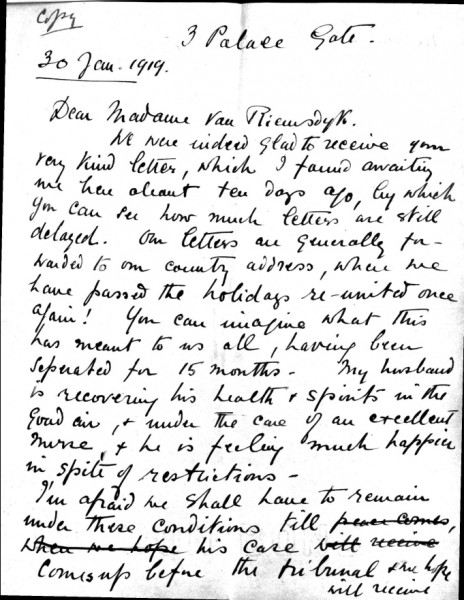 Copy
3 Palace Gate.
30 Jan. 1919.
Dear Madame van Riemsdyk.
We were indeed glad to receive your
very kind letter, which I found awaiting
me here about ten days ago, by which
you can see how much letters are still
delayed. Our letters are generally for-
warded to our country address, where we
have passed the holidays re-united once
again! You can imagine what this
has meant to us all, having been
seperated for 15 months - My husband
is recovering his health & spirits in the
good air, & under the care of an excellent
nurse, & he is feeling much happier
in spite of restrictions -
I'm afraid we shall have to remain
under these conditions till peace comes,
when we hope his case will receive
comes up before the tribunal & we hope
will receive